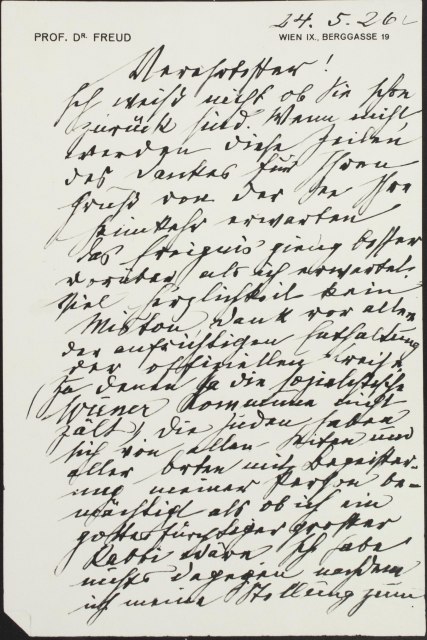 24. 5. 26
PROF. DR. FREUD
WIEN IX., BERGGASSE 19
Verehrtester!
Ich weiß nicht ob Sie schon
zurück sind. Wenn nicht,
werden diese Zeilen
des Dankes für Ihren
Gruß von der See Ihre
Heimkehr erwarten
Das Ereignis gieng besser
vorüber als ich erwartet.
Viel Herzlichkeit kein
Mißton, dank vor allem
der aufrichtigen Enthaltung
der offiziellen Kreise
(zu denen ja die sozialistische
Wiener Kommune nicht
zält). Die Juden haben
sich von allen Seiten und
aller Orten mit Begeister-
ung meiner Person be-
mächtigt als ob ich ein
gottesfürchtiger grosser
Rabbi wäre. Ich habe
nichts dagegen nachdem
ich meine Stellung zum